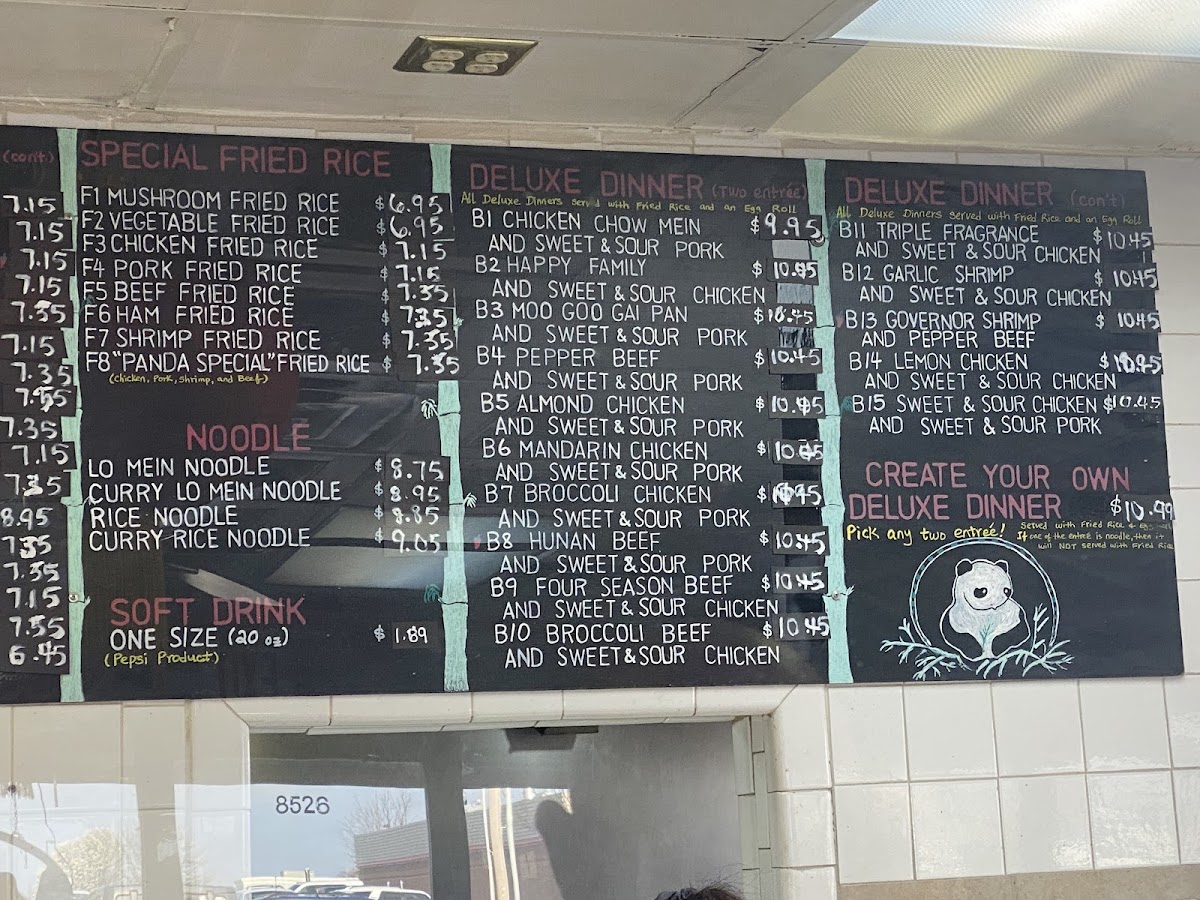 (con't)
7.15
7.15
7.15
7.15
7.35
7.15
7.35
7.55
7.35
7.15
7.35
8.95
7.35
7.35
7.15
7.55
6.45
SPECIAL FRIED RICE
F1 MUSHROOM FRIED RICE $6.95
F2 VEGETABLE FRIED RICE $6.95
F3 CHICKEN FRIED RICE $7.15
F4 PORK FRIED RICE $7.15
F5 BEEF FRIED RICE $7.35
F6 HAM FRIED RICE $7.35
F7 SHRIMP FRIED RICE $7.35
F8 "PANDA SPECIAL" FRIED RICE $7.35
(Chicken, Pork, Shrimp, and Beef)
NOODLE
LO MEIN NOODLE $8.75
CURRY LO MEIN NOODLE $8.95
RICE NOODLE $8.85
CURRY RICE NOODLE $9.05
SOFT DRINK
ONE SIZE (20 oz) $1.89
(Pepsi Product)
DELUXE DINNER (Two entrée)
All Deluxe Dinners Served with Fried Rice and an Egg Roll
B1 CHICKEN CHOW MEIN $9.95
AND SWEET & SOUR PORK
B2 HAPPY FAMILY $10.45
AND SWEET & SOUR CHICKEN
B3 MOO GOO GAI PAN $10.45
AND SWEET & SOUR PORK
B4 PEPPER BEEF $10.45
AND SWEET & SOUR PORK
B5 ALMOND CHICKEN $10.45
AND SWEET & SOUR PORK
B6 MANDARIN CHICKEN $10.45
AND SWEET & SOUR PORK
B7 BROCCOLI CHICKEN $10.45
AND SWEET & SOUR PORK
B8 HUNAN BEEF $10.45
AND SWEET & SOUR PORK
B9 FOUR SEASON BEEF $10.45
AND SWEET & SOUR CHICKEN
B10 BROCCOLI BEEF $10.45
AND SWEET & SOUR CHICKEN
DELUXE DINNER (con't)
All Deluxe Dinners served with Fried Rice and an Egg Roll
B11 TRIPLE FRAGRANCE $10.45
AND SWEET & SOUR CHICKEN
B12 GARLIC SHRIMP $10.45
AND SWEET & SOUR CHICKEN
B13 GOVERNOR SHRIMP $10.45
AND PEPPER BEEF
B14 LEMON CHICKEN $10.45
AND SWEET & SOUR CHICKEN
B15 SWEET & SOUR CHICKEN $10.45
AND SWEET & SOUR PORK
CREATE YOUR OWN
DELUXE DINNER $10.99
Pick any two entrée!
Served with Fried Rice & Egg
If one of the entrée is noodle, then it
will NOT served with Fried Rice
8526